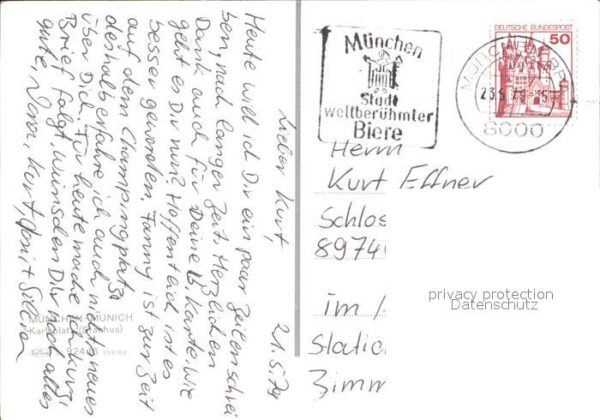 21.5.79
Lieber Kurt
Heute will ich Dir ein paar Zeilen schrei
ben, nach langer Zeit. Herzlichen
Dank auch für Deine Karte. Wie
geht es Dir nun? Hoffentlich ist es
besser geworden. Fanny ist zur Zeit
auf dem Champingplatz
deshalb erfahre ich auch nichts neues
über Dich. Für heute mache ich kurz,
Brief folgt. Wünschen Dir noch alles
gute, Kurt,
MÜNCHEN MUNICH
Karlsplatz (Stachus)
München
Stadt
weltberühmter
Biere
8000
DEUTSCHE BUNDESPOST
50
Herrn
Kurt Effner
Schlos
8974
im
Static
Zimm
privacy protection
Datenschutz